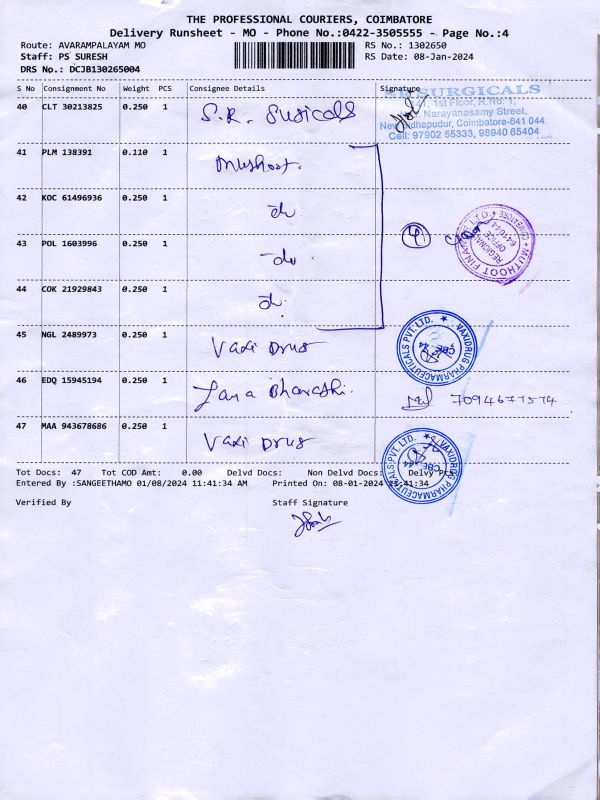 THE PROFESSIONAL COURIERS, COIMBATORE
Delivery Runsheet - MO - Phone No.:0422-3505555 - Page No.:4
Route: AVARAMPALAYAM MO RS No.: 1302650
Staff: PS SURESH RS Date: 08-Jan-2024
DRS No.: DCJB130265004
S No Consignment No Weight PCS Consignee Details Signature
40 CLT 30213825 0.250 1 S.R. Sugicals
SR SURGICALS
41, 1st Floor, R.No. 1,
Narayanasamy Street,
New Siddhapudur, Coimbatore-641 044.
Cell: 97902 55333, 98940 65404
41 PLM 138391 0.110 1 Muthoot.
42 KOC 61496936 0.250 1 do
43 POL 1603996 0.250 1 -do
4
MUTHOOT FINANCE LTD. COIMBATORE
REGIONAL OFFICE 641044
44 COK 21929843 0.250 1 do
45 NGL 2489973 0.250 1 Vaxi Drug
VAXIDRUG PHARMACEUTICALS PVT. LTD. CBE-44
46 EDQ 15945194 0.250 1 Jana Bharathi. 7094677574
47 MAA 943678686 0.250 1 Vaxi Drug
VAXIDRUG PHARMACEUTICALS PVT. LTD. CBE-44
Tot Docs: 47 Tot COD Amt: 0.00 Delvd Docs: Non Delvd Docs: Delvy Pct:
Entered By :SANGEETHAMO 01/08/2024 11:41:34 AM Printed On: 08-01-2024 11:41:34
Verified By Staff Signature